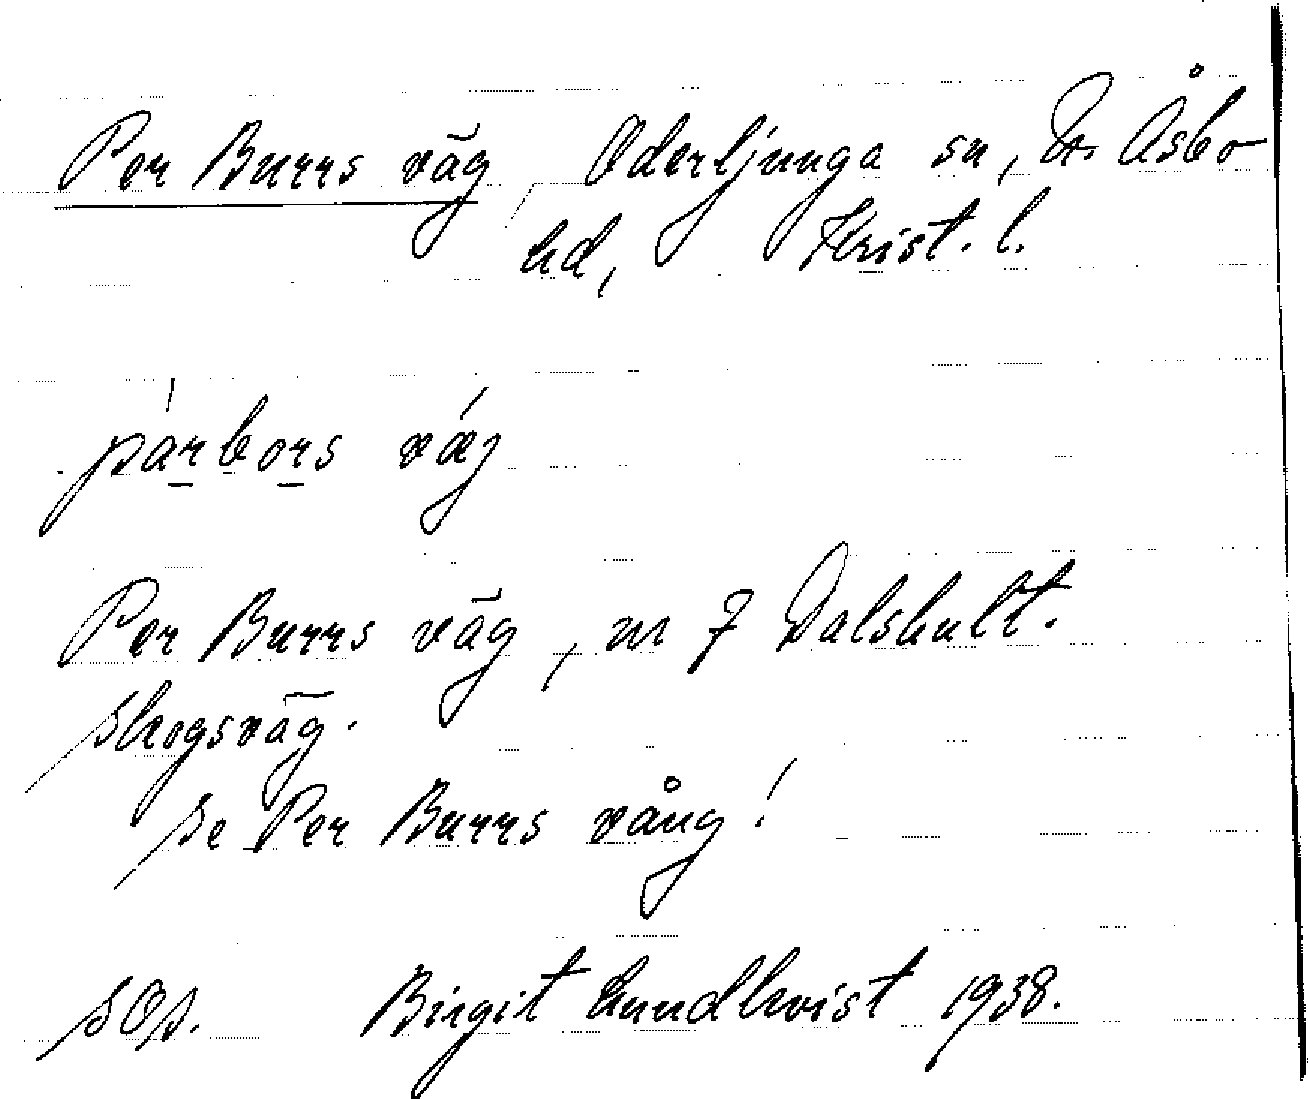 Per Burrs väg Oderljunga sn, N. Åsbo
hd, Krist. l.
párbors váj
Per Burrs väg, nr 7 Dalshult.
skogsväg.
se Per Burrs vång!
SOs. Birgit Lundkvist 1938.